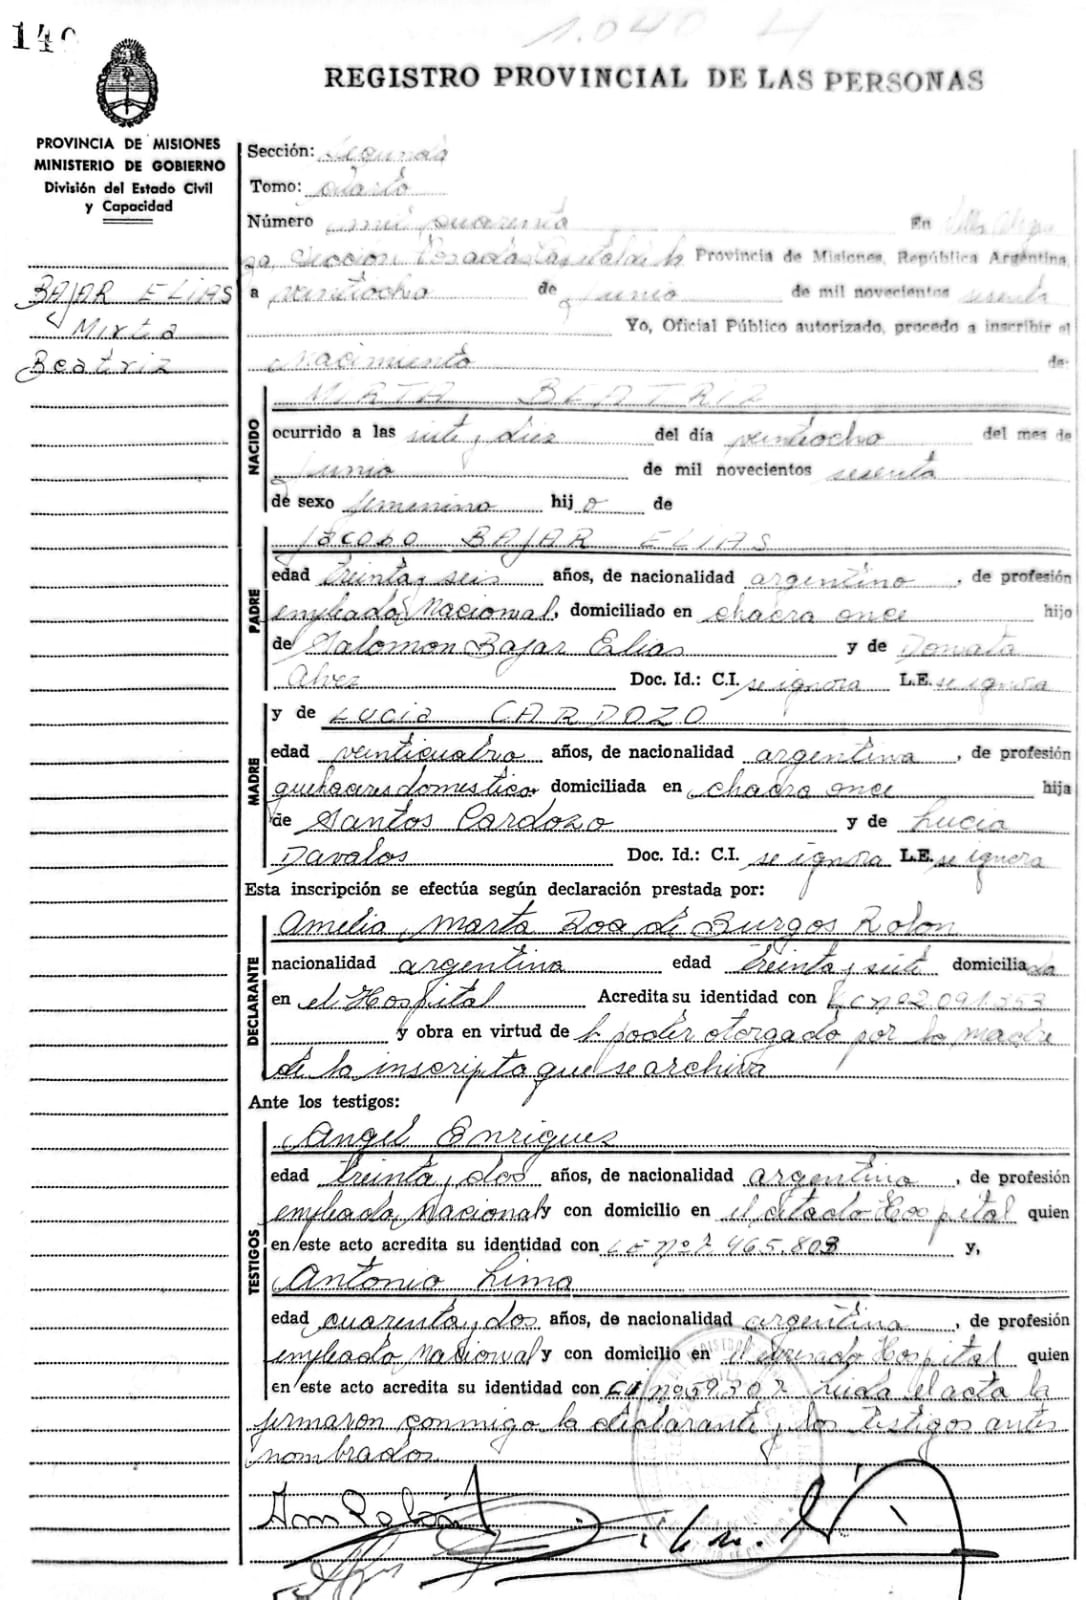 140
1.040
REGISTRO PROVINCIAL DE LAS PERSONAS
PROVINCIA DE MISIONES
MINISTERIO DE GOBIERNO
División del Estado Civil
y Capacidad
BAJAR ELIAS
Mirta
Beatriz
Sección: Segunda
Tomo: Cuarto
Número mil cuarenta En Villa
Sección Posadas Capital de la Provincia de Misiones, República Argentina,
a veintiocho de Junio de mil novecientos sesenta
Yo, Oficial Público autorizado, procedo a inscribir el
Nacimiento de:
NACIDO
MIRTA BEATRIZ
ocurrido a las siete y diez del día veintiocho del mes de
Junio de mil novecientos sesenta
de sexo femenino hij o de
PADRE
Jacobo BAJAR ELIAS
edad treinta y seis años, de nacionalidad argentino, de profesión
empleado Nacional, domiciliado en chacra once hijo
de Salomon Bajar Elias y de Donata
Alvez Doc. Id.: C.I. se ignora L.E. se ignora
MADRE
y de Lucia CARDOZO
edad veinticuatro años, de nacionalidad argentina, de profesión
quehaceres domestico domiciliada en chacra once hija
de Santos Cardozo y de Lucia
Davalos Doc. Id.: C.I. se ignora L.E. se ignora
Esta inscripción se efectúa según declaración prestada por:
DECLARANTE
Amelia Marta Roa de Burgos Rolon
nacionalidad argentina edad treinta y siete domiciliada
en el Hospital Acredita su identidad con L C nº 02.091.353
y obra en virtud de la poder otorgado por la madre
de la inscripta que se archiva
Ante los testigos:
TESTIGOS
Angel Enriques
edad treinta y dos años, de nacionalidad argentina, de profesión
empleado Nacional y con domicilio en el citado Hospital quien
en este acto acredita su identidad con L E nº 7.465.803 y,
Antonio Lima
edad cuarenta y dos años, de nacionalidad argentina, de profesión
empleado Nacional y con domicilio en el Hospital quien
en este acto acredita su identidad con nº 59.307 Leida el acta la
firmaron conmigo la declarante y los testigos antes
nombrados